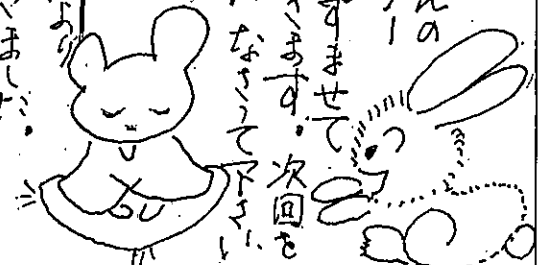 んの
ー
すませて
きます。次回を
なさって下さい
より
ました。